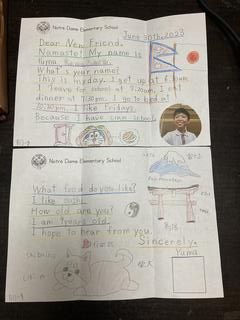 Notre Dame Elementary School
June 30th 2023
Dear New Friend,
Namaste! My name is
Yuma
What's your name?
This is my day. I get up at 6:10am
leave for school at 7:30am. I eat
dinner at 7:30pm. I go to bed at
10:30pm. I like Fridays.
Because I have swim school
Notre Dame Elementary School
What food do you like?
I like sushi.
How old are you?
I am 7 years old.
I hope to hear from you.
Sincerely,
Yuma
富士山
Fuji Mountain
鳥居
Shiba inu
柴犬